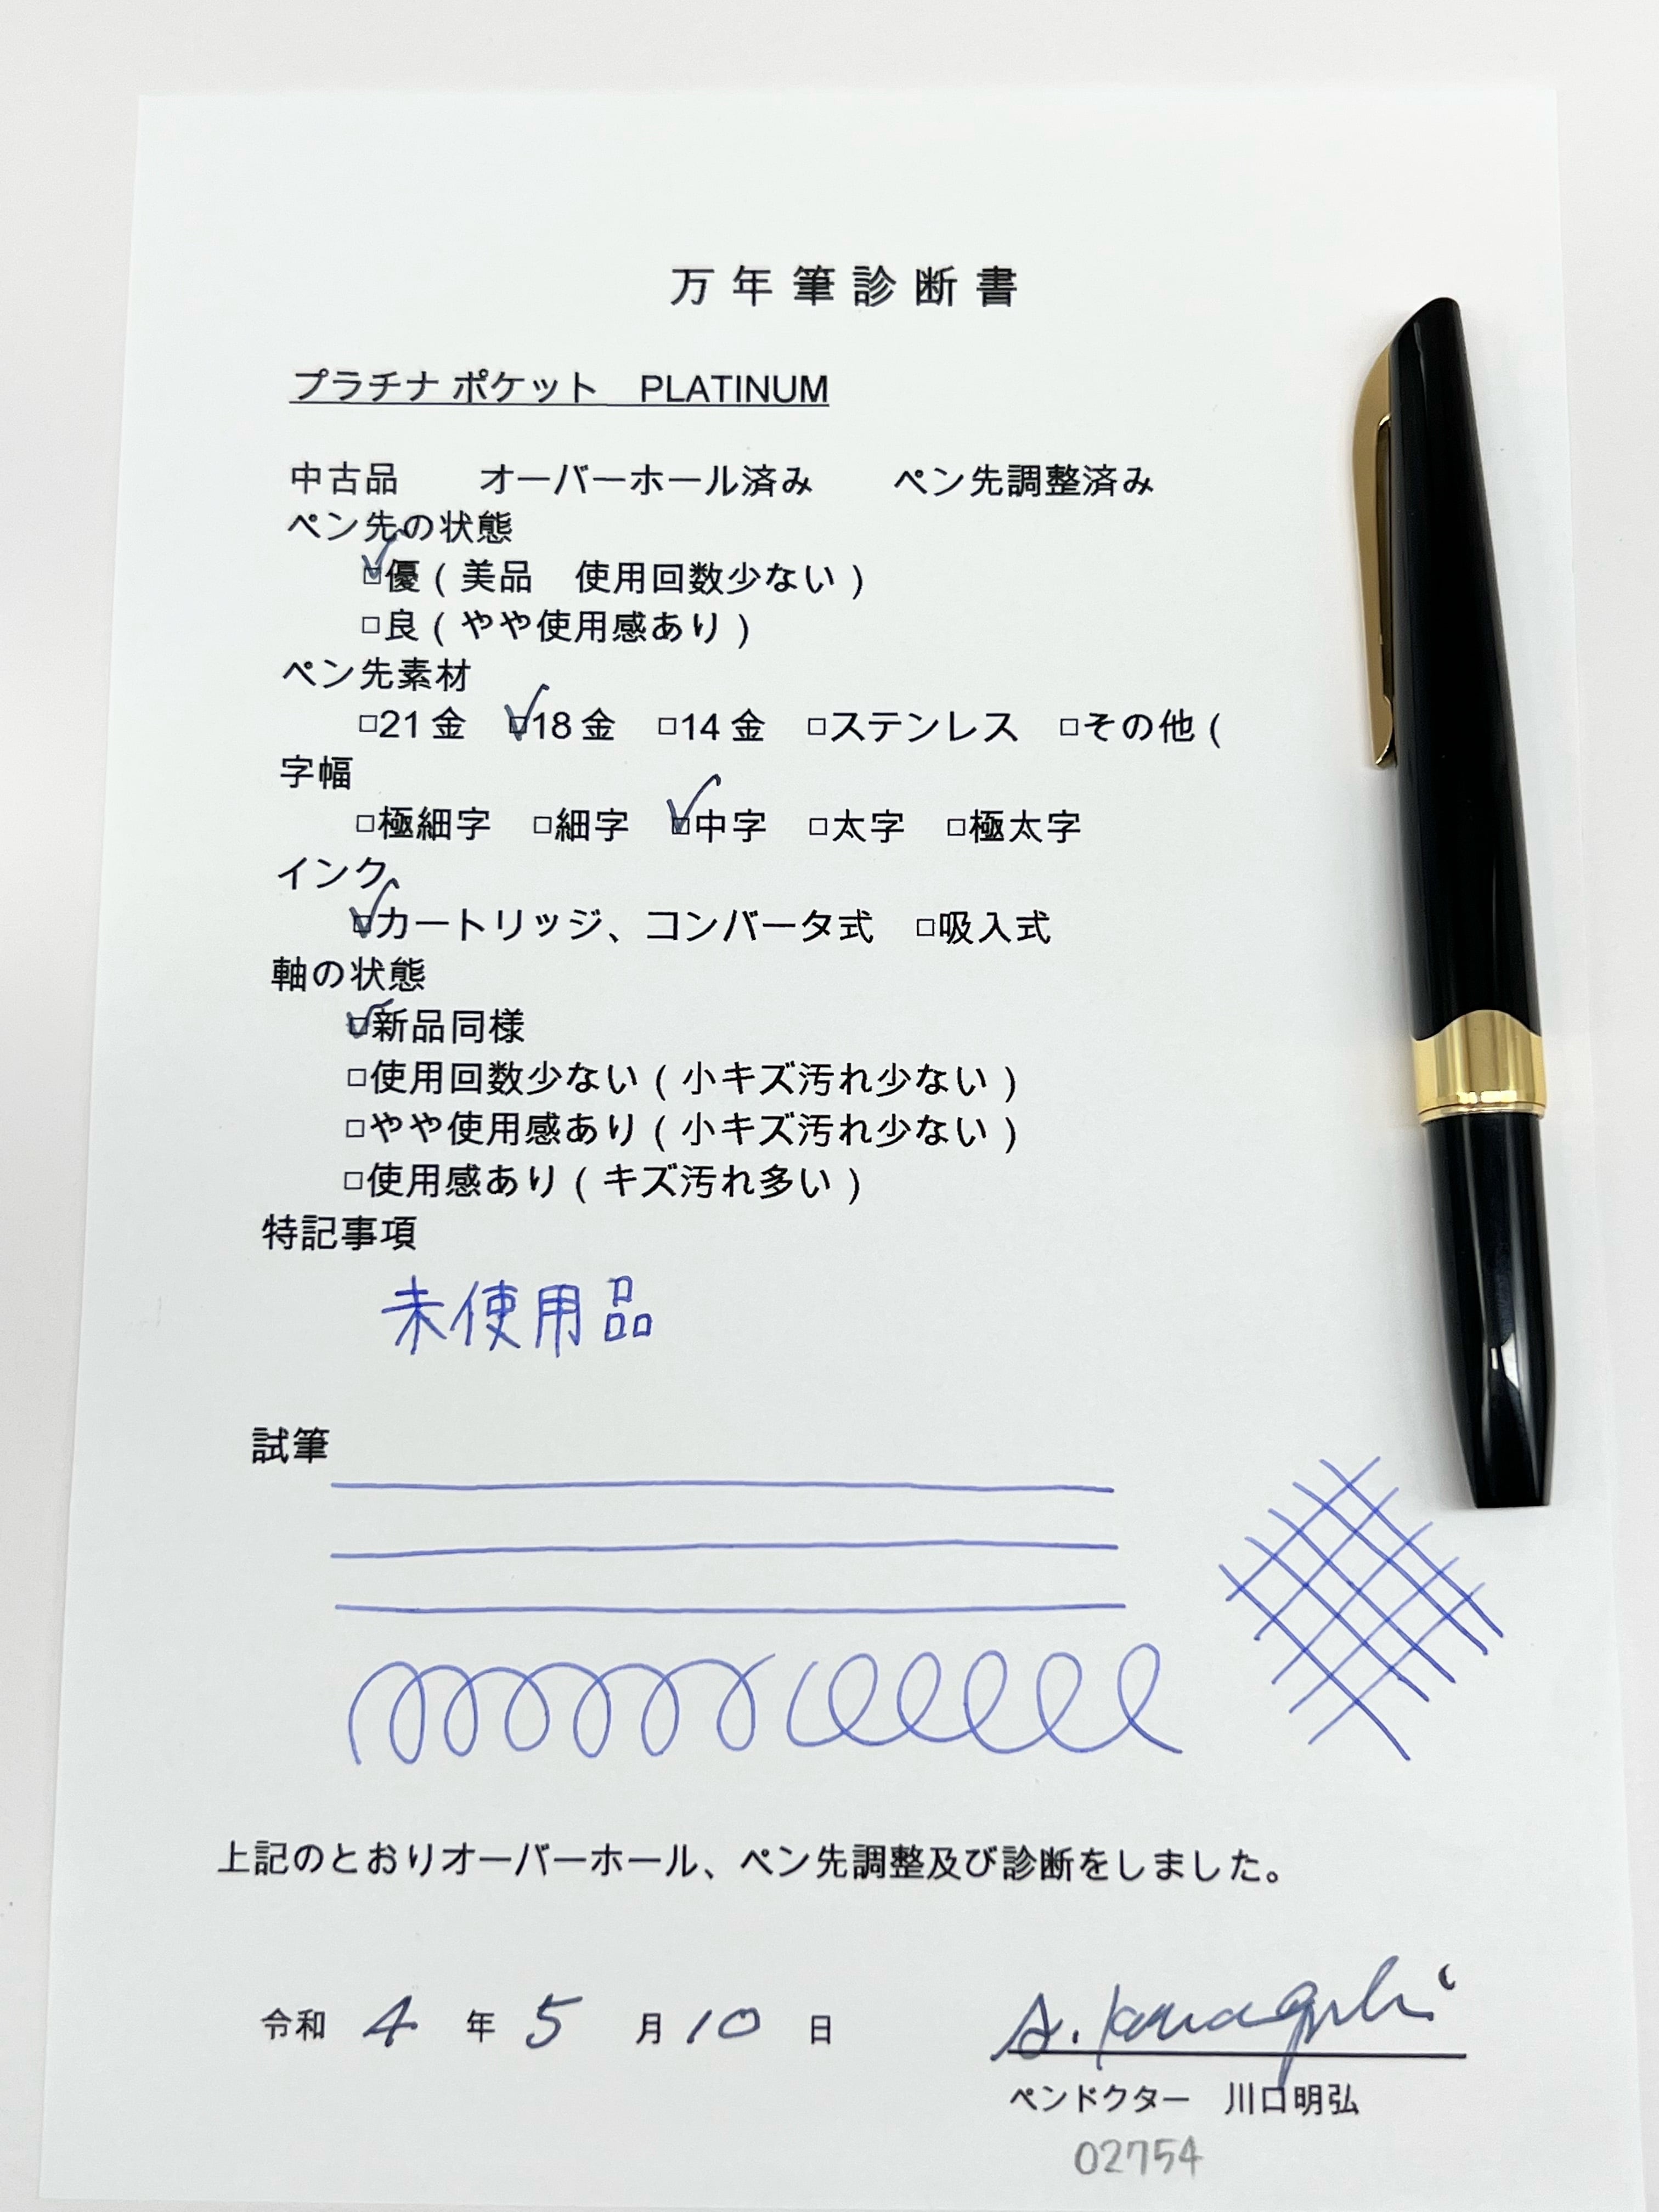 万年筆診断書
プラチナ ポケット　PLATINUM
中古品　　オーバーホール済み　　ペン先調整済み
ペン先の状態
☑優（美品　使用回数少ない）
□良（やや使用感あり）
ペン先素材
□21金　☑18金　□14金　□ステンレス　□その他（
字幅
□極細字　□細字　☑中字　□太字　□極太字
インク
☑カートリッジ、コンバータ式　□吸入式
軸の状態
☑新品同様
□使用回数少ない（小キズ汚れ少ない）
□やや使用感あり（小キズ汚れ少ない）
□使用感あり（キズ汚れ多い）
特記事項
未使用品
試筆
上記のとおりオーバーホール、ペン先調整及び診断をしました。
令和 4 年 5 月 10 日
A. Kawaguchi
ペンドクター　川口明弘
02754